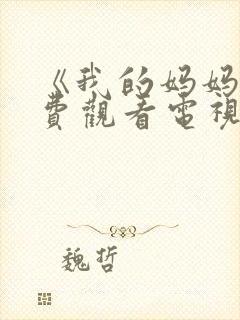 《我的妈妈
費觀看電視
魏哲